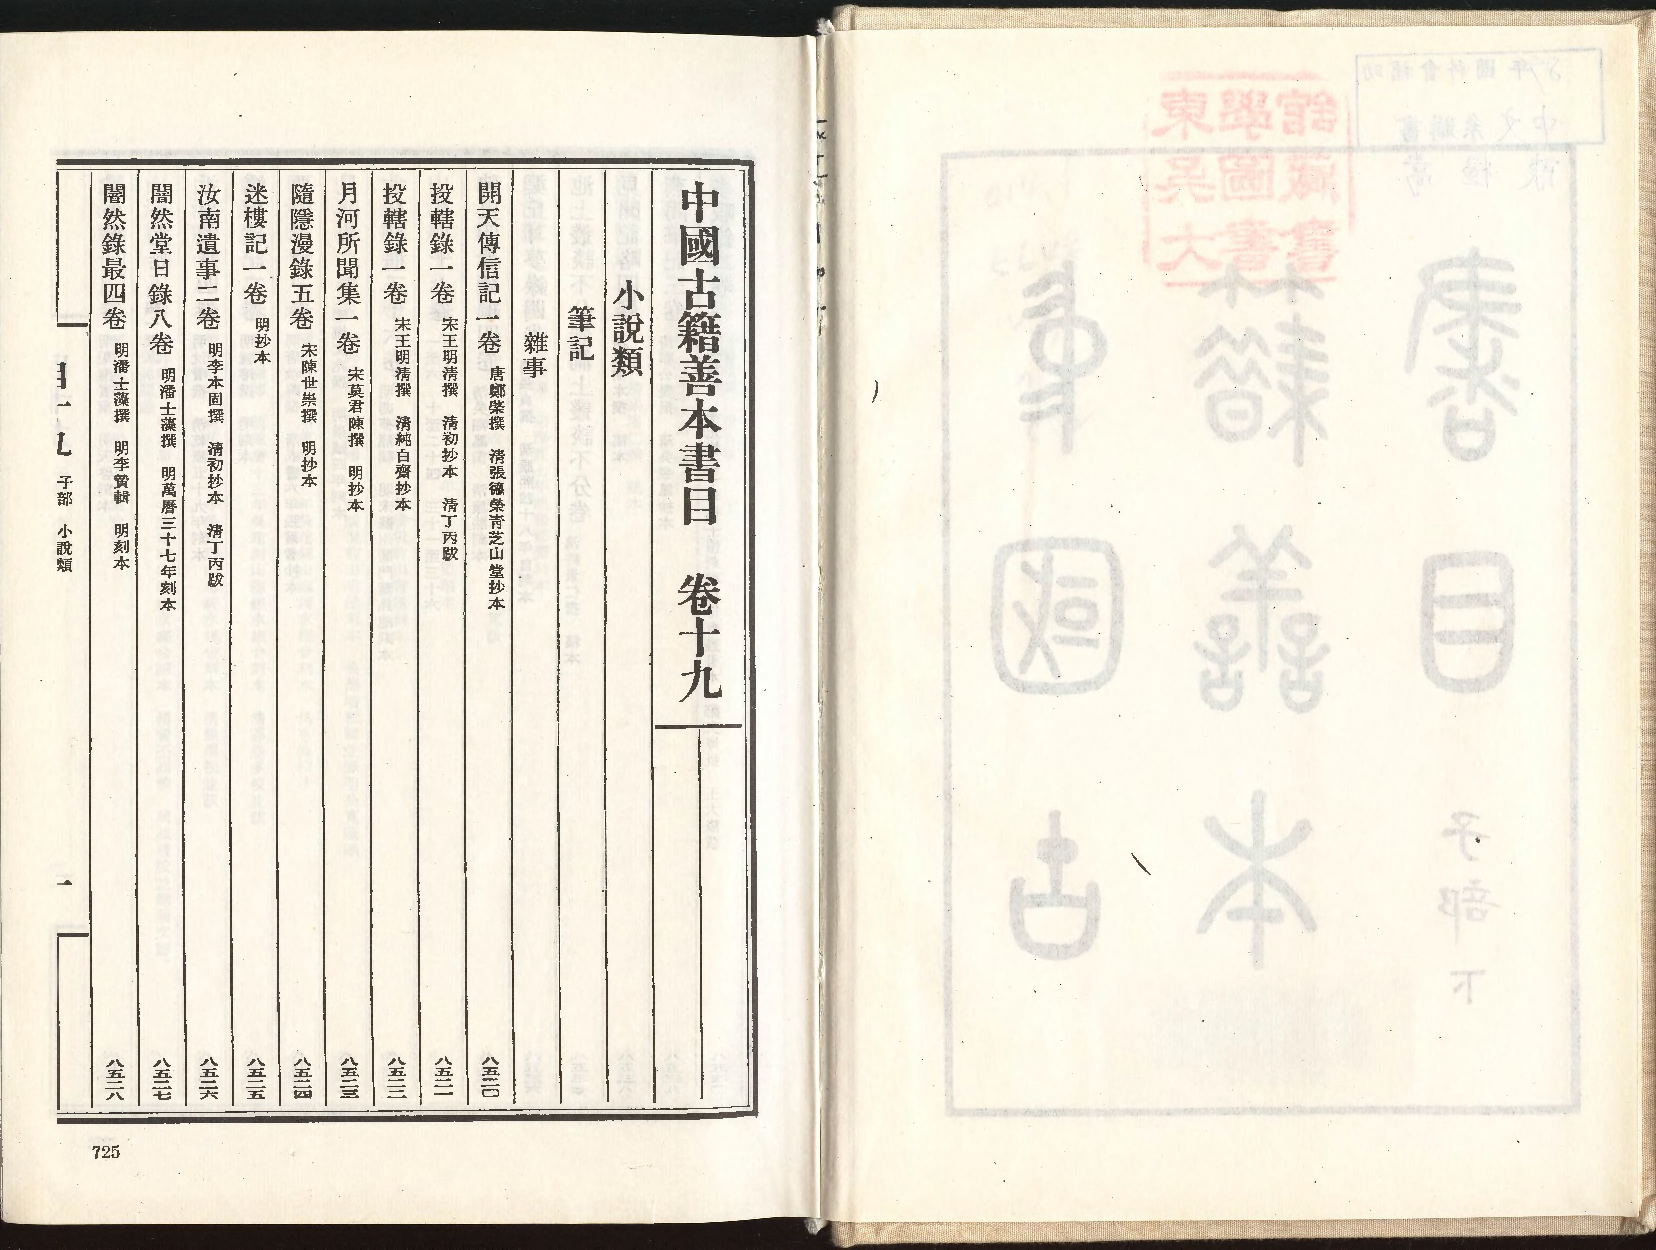 中國古籍善本書目　卷十九
小說類
筆記
雜事
開天傳信記一卷　唐鄭棨撰　清張德榮青芝山堂抄本　八五二〇
投轄錄一卷　宋王明清撰　清初抄本　清丁丙跋　八五二一
投轄錄一卷　宋王明清撰　清純白齋抄本　八五二二
月河所聞集一卷　宋莫君陳撰　明抄本　八五二三
隨隱漫錄五卷　宋陳世崇撰　明抄本　八五二四
迷樓記一卷　明抄本　八五二五
汝南遺事二卷　明李本固撰　清初抄本　清丁丙跋　八五二六
闇然堂日錄八卷　明潘士藻撰　明萬曆三十七年刻本　八五二七
闇然錄最四卷　明潘士藻撰　明李贄輯　明刻本　八五二八
子部　小說類　一
725
中國古
籍善本
書目
子部下
東吳大
學圖書
館藏書